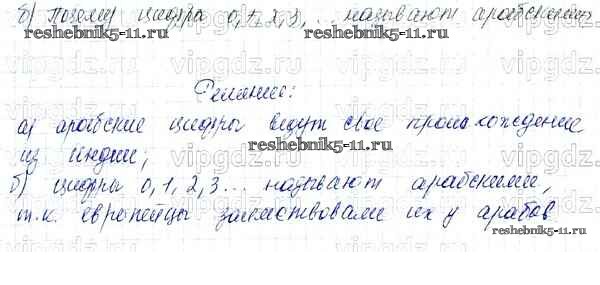 б) Почему цифры 0, 1, 2, 3, ... называют арабскими
reshebnik5-11.ru reshebnik5-11.ru
vipgdz.ru vipgdz.ru vipgdz.ru
Решение:
reshebnik5-11.ru
а) арабские цифры ведут свое происхождение
reshebnik5-11.ru
из Индии;
vipgdz.ru vipgdz.ru vipgdz.ru
б) цифры 0, 1, 2, 3 ... называют арабскими,
reshebnik5-11.ru
т.к. европейцы заимствовали их у арабов
reshebnik5-11.ru
vipgdz.ru vipgdz.ru vipgdz.ru